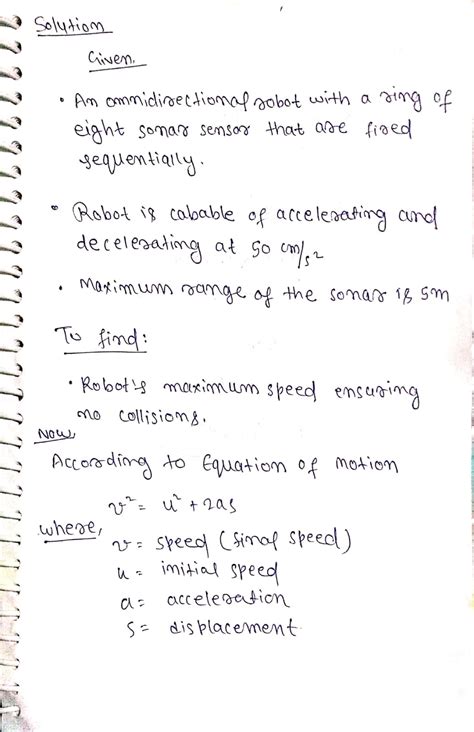 Solution
Given.
• An omnidirectional robot with a ring of
eight sonar sensor that are fired
sequentially.
• Robot is cabable of accelerating and
decelerating at 50 cm/s²
• Maximum range of the sonar is 5m
To find:
• Robot's maximum speed ensuring
no collisions.
Now,
According to Equation of motion
v² = u² + 2as
where,
v = speed (final speed)
u = initial speed
a = acceleration
s = displacement.